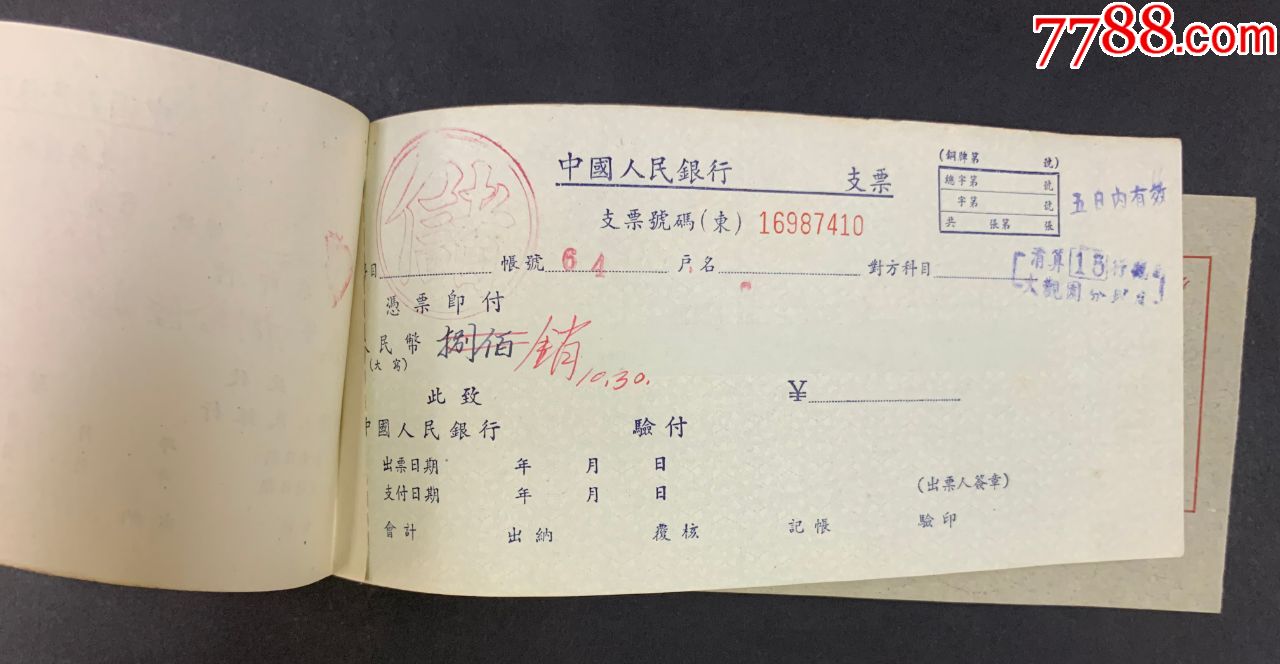 7788.com
中國人民銀行 支票
(銅牌第 號)
總字第 號
字第 號
共 張第 張
五日内有效
支票號碼(東) 16987410
目 帳號 64 戶名 對方科目
清算 13 行
大觀園分
憑票即付
人民幣 捌佰 銷 10.30.
(大寫)
此致 ¥
中國人民銀行 驗付
出票日期 年 月 日
支付日期 年 月 日
(出票人簽章)
會計 出納 覆核 記帳 驗印